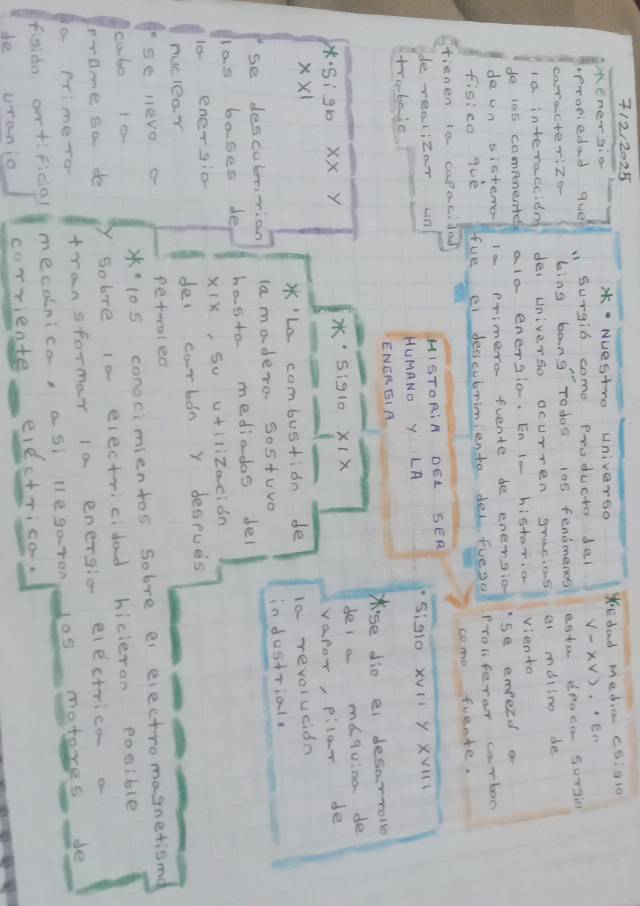 7/2/2025
* Energía
• Propiedad que
caracteriza
la interacción
de los componentes
de un sistema
físico que
tienen la capacidad
de realizar un
trabajo
* • Nuestro universo
surgió como producto del
"bing bang" Todos los fenómenos
del universo ocurren gracias
a la energía. En la historia
la primera fuente de energía
fue el descubrimiento del fuego
* Edad Media (siglo
V-XV). • En
esta época surgio
el molino de
viento
• se empezó a
proliferar carbon
como fuente.
HISTORIA DEL SER
HUMANO Y LA
ENERGIA
• Siglo XVII y XVIII
* se dio el desarrollo
de la máquina de
vapor, pilar de
la revolución
industrial.
* • siglo XIX
* • La combustión de
la madera sostuvo
hasta mediados del
XIX, su utilización
del carbón y después
petroleo
* • los conocimientos sobre el electromagnetismo
y sobre la electricidad hicieron posible
transformar la energía eléctrica a
mecánica, así llegaron los motores de
corriente eléctrica.
* • Siglo XX y
XXI
• se descubrirían
las bases de
la energía
nuclear
• se llevo a
cabo la
promesa de
la primera
fisión artificial
de uranio